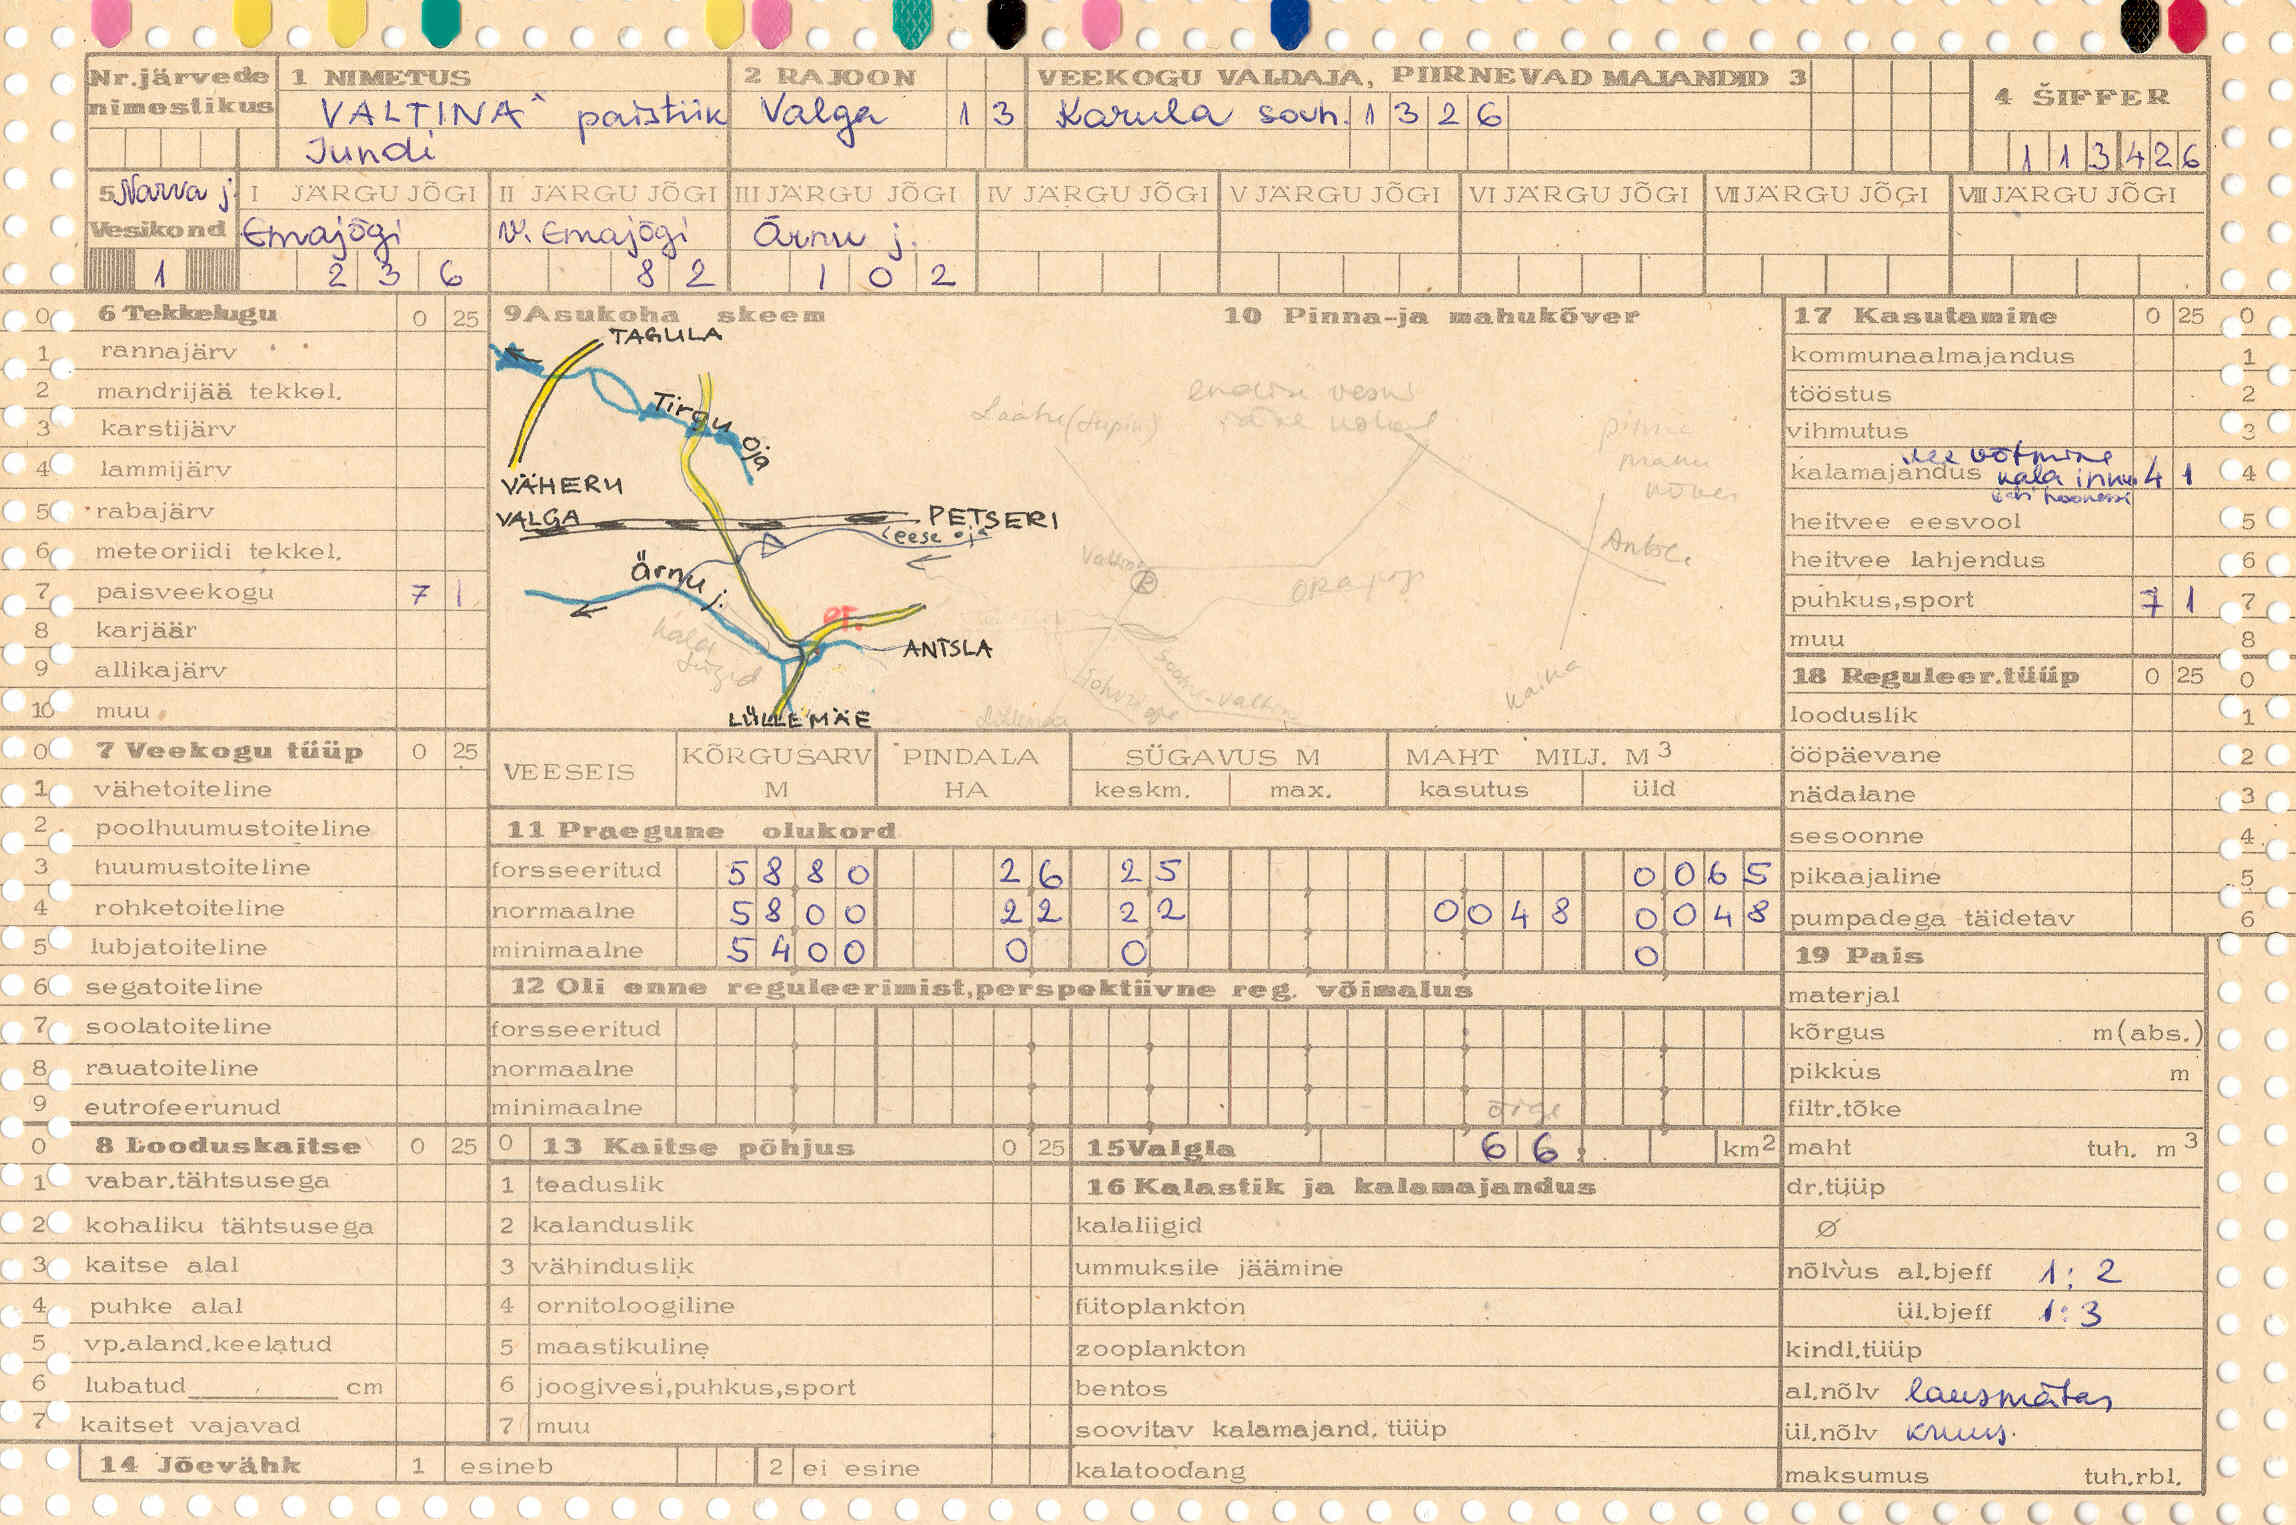 Nr.järvede nimestikus
1 NIMETUS
VALTINA paistiik
Jundi
2 RAJOON
Valga 1 3
VEEKOGU VALDAJA, PIIRNEVAD MAJANDID 3
Karula sovh. 1 3 2 6
4 ŠIFFER
1 1 3 4 2 6
5 Narva j.
Vesikond
1
I JÄRGU JÕGI
Emajõgi
2 3 6
II JÄRGU JÕGI
V. Emajõgi
8 2
III JÄRGU JÕGI
Ärnu j.
1 0 2
IV JÄRGU JÕGI
V JÄRGU JÕGI
VI JÄRGU JÕGI
VII JÄRGU JÕGI
VIII JÄRGU JÕGI
0 6 Tekkelugu 0 25
1 rannajärv
2 mandrijää tekkel.
3 karstijärv
4 lammijärv
5 rabajärv
6 meteoriidi tekkel.
7 paisveekogu 7 1
8 karjäär
9 allikajärv
10 muu
0 7 Veekogu tüüp 0 25
1 vähetoiteline
2 poolhuumustoiteline
3 huumustoiteline
4 rohketoiteline
5 lubjatoiteline
6 segatoiteline
7 soolatoiteline
8 rauatoiteline
9 eutrofeerunud
0 8 Looduskaitse 0 25
1 vabar.tähtsusega
2 kohaliku tähtsusega
3 kaitse alal
4 puhke alal
5 vp.aland.keelatud
6 lubatud cm
7 kaitset vajavad
14 Jõevähk 1 esineb 2 ei esine
9 Asukoha skeem
TAGULA
Tirgu oja
VÄHERU
VALGA
PETSERI
Leese oja
Ärnu j.
ANTSLA
LÜLLEMÄE
10 Pinna-ja mahukõver
VEESEIS
KÕRGUSARV M
PINDALA HA
SÜGAVUS M
keskm. max.
MAHT MILJ. M3
kasutus üld
11 Praegune olukord
forsseeritud 5 8 8 0 2 6 2 5 0 0 6 5
normaalne 5 8 0 0 2 2 2 2 0 0 4 8 0 0 4 8
minimaalne 5 4 0 0 0 0 0
12 Oli enne reguleerimist,perspektiivne reg. võimalus
forsseeritud
normaalne
minimaalne
õige
0 13 Kaitse põhjus 0 25
1 teaduslik
2 kalanduslik
3 vähinduslik
4 ornitoloogiline
5 maastikuline
6 joogivesi,puhkus,sport
7 muu
15 Valgla 6 6 , km2
16 Kalastik ja kalamajandus
kalaliigid
ummuksile jäämine
fütoplankton
zooplankton
bentos
soovitav kalamajand. tüüp
kalatoodang
17 Kasutamine 0 25 0
kommunaalmajandus 1
tööstus 2
vihmutus 3
kalamajandus 4 1 4
heitvee eesvool 5
heitvee lahjendus 6
puhkus,sport 7 1 7
muu 8
18 Reguleer.tüüp 0 25 0
looduslik 1
ööpäevane 2
nädalane 3
sesoonne 4
pikaajaline 5
pumpadega täidetav 6
19 Pais
materjal
kõrgus m(abs.)
pikkus m
filtr.tõke
maht tuh. m3
dr.tüüp
Ø
nõlvus al.bjeff 1:2
ül.bjeff 1:3
kindl.tüüp
al.nõlv lausmätas
ül.nõlv kruus.
maksumus tuh.rbl.